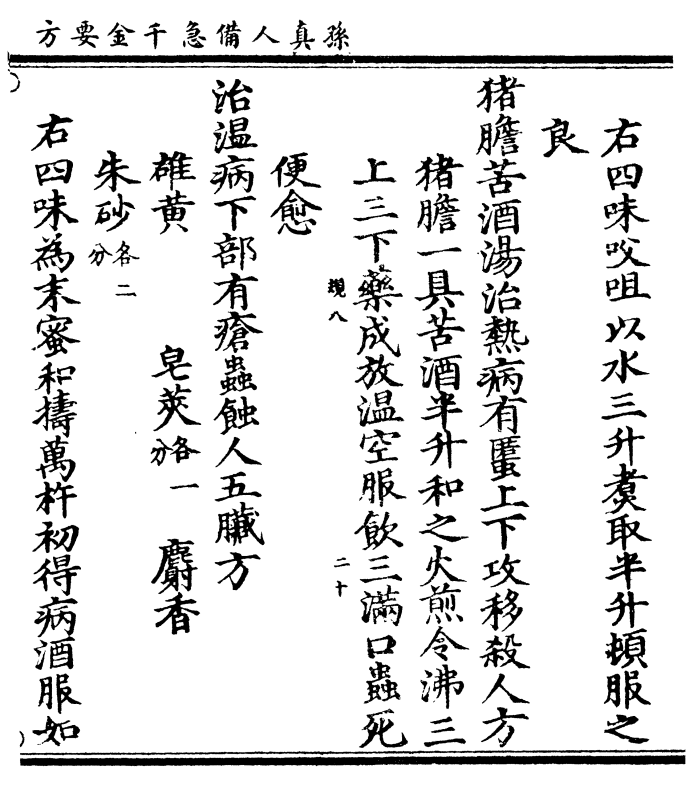 孫真人備急千金要方
右四味㕮咀以水三升煑取半升頓服之
良
猪膽苦酒湯治熱病有䘌上下攻移殺人方
猪膽一具苦酒半升和之火煎令沸三
上三下藥成放温空服飲三滿口蟲死
便愈
治温病下部有瘡蟲蝕人五臟方
雄黄 皂莢各一分 麝香
朱砂各二分
右四味為末蜜和擣萬杵初得病酒服如
覞八
二十